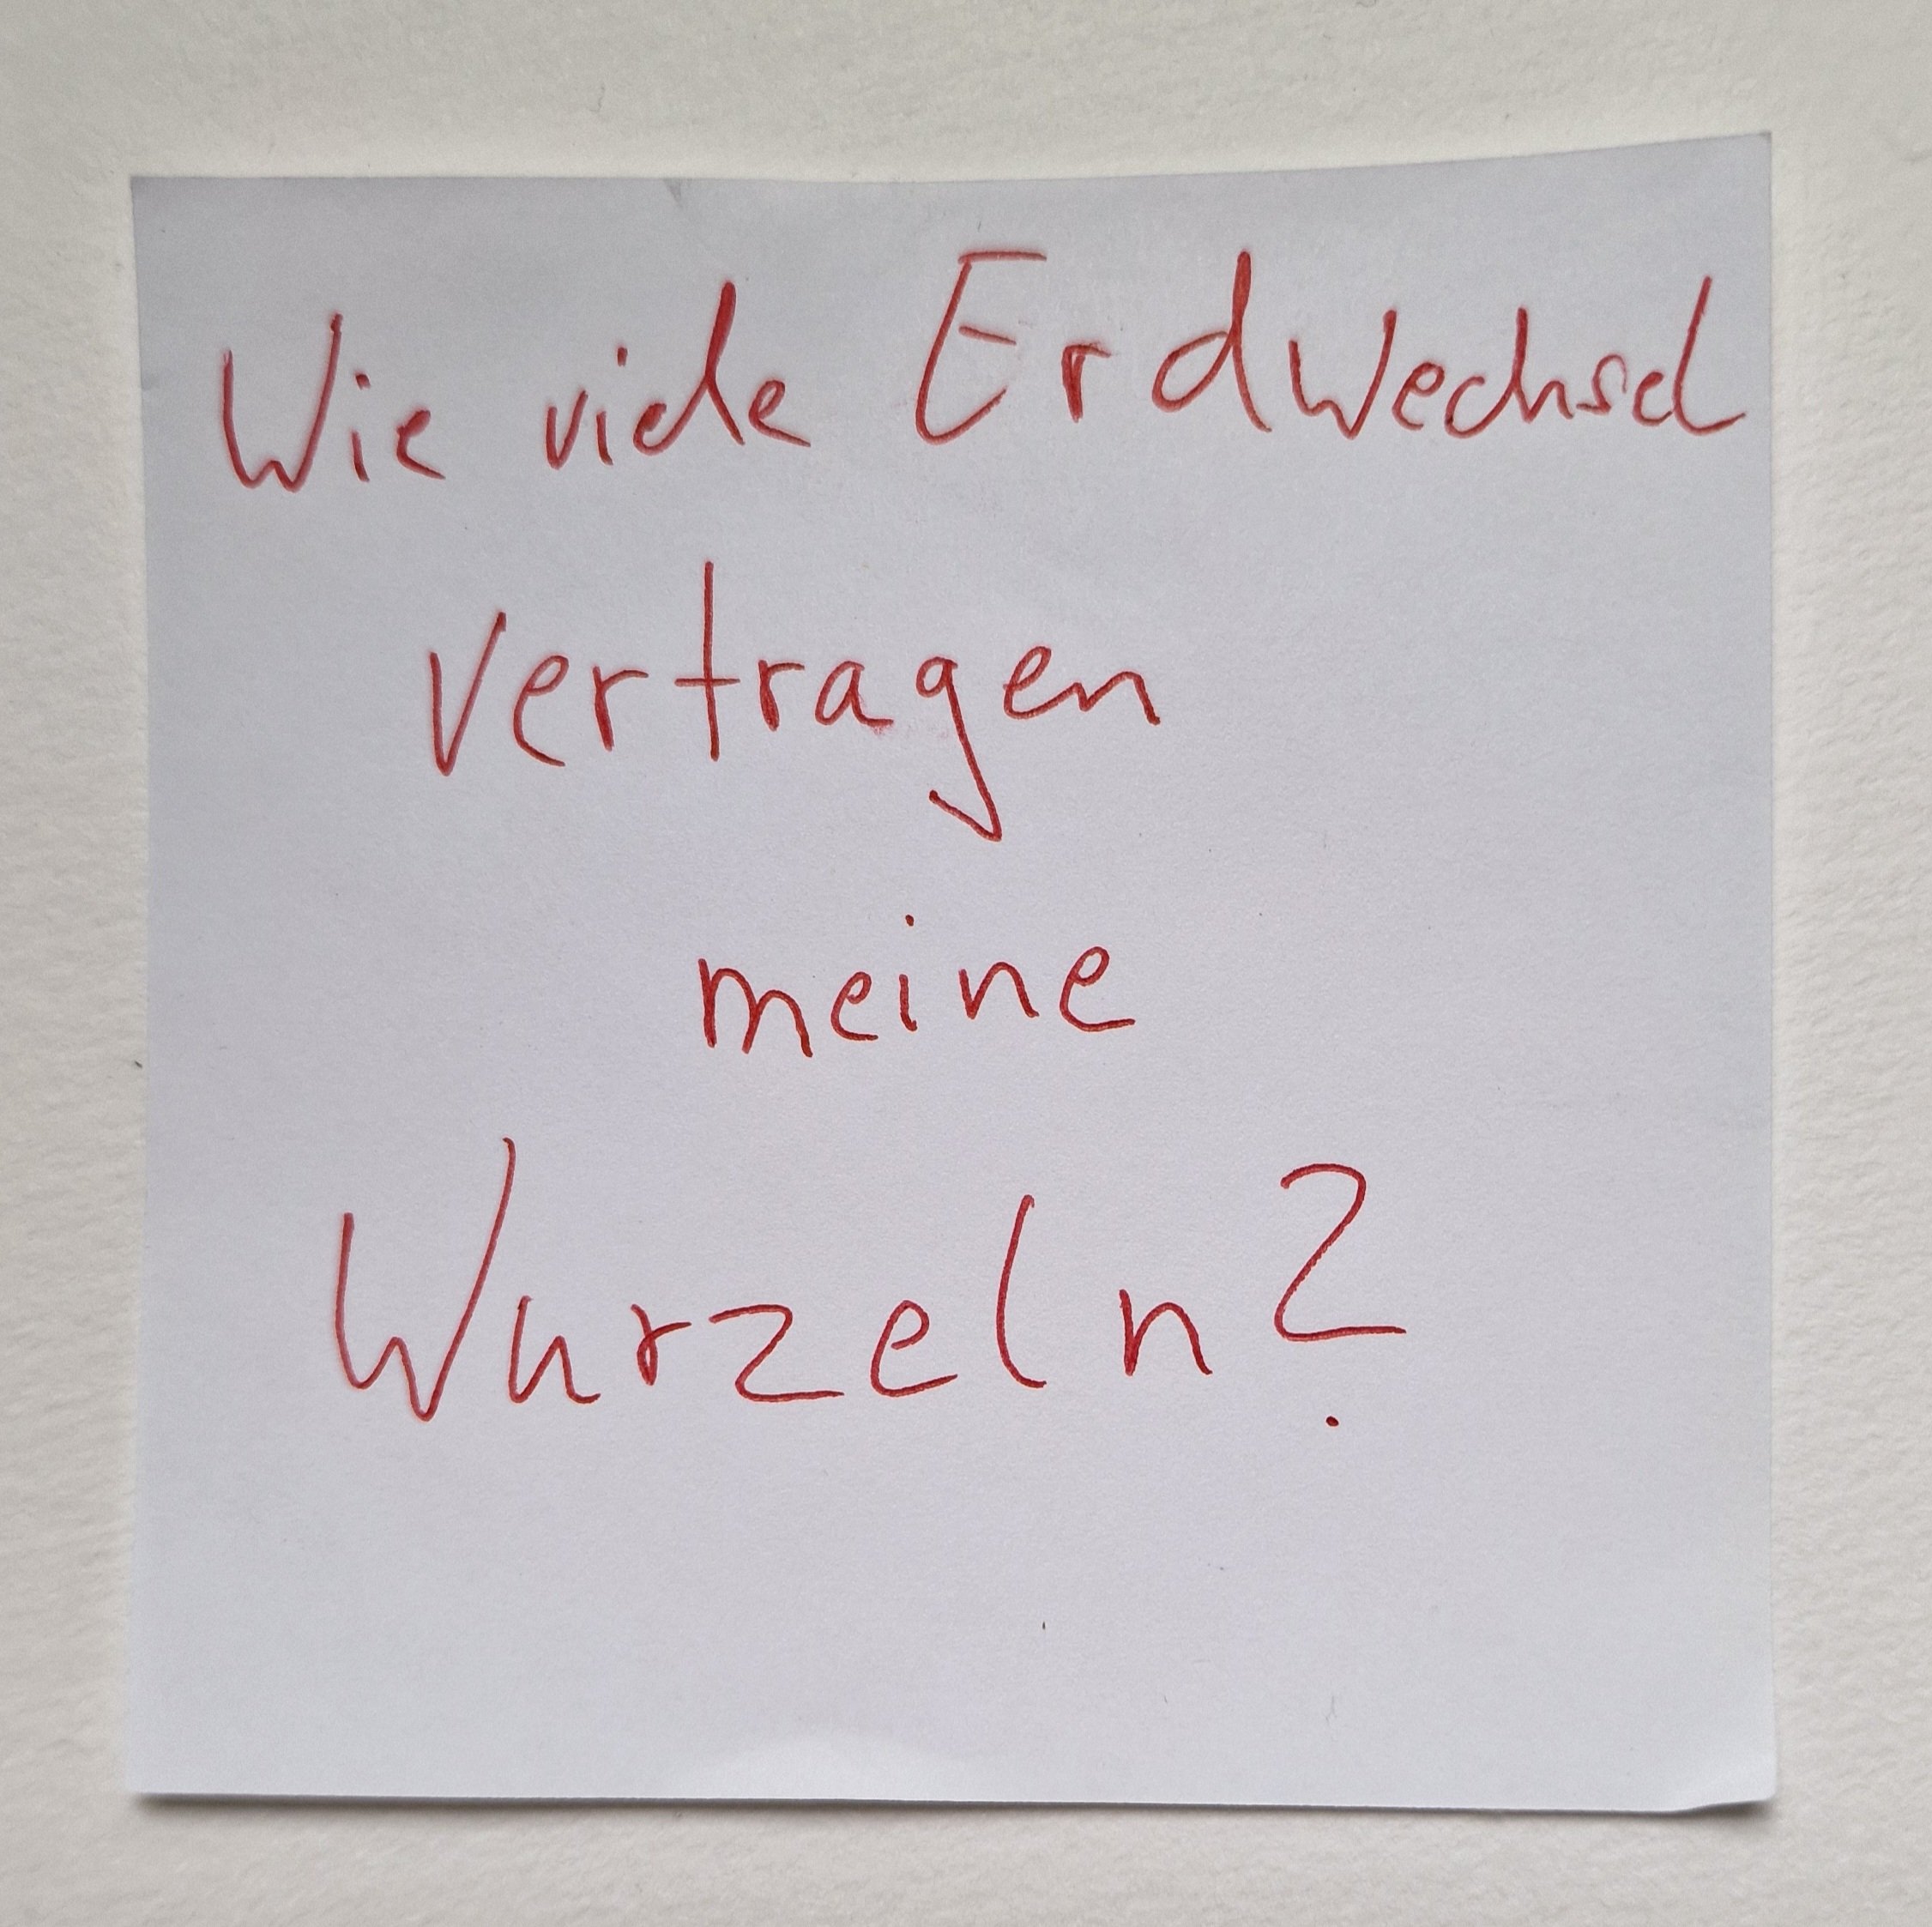 Wie viele Erdwechsel
vertragen
meine
Wurzeln?